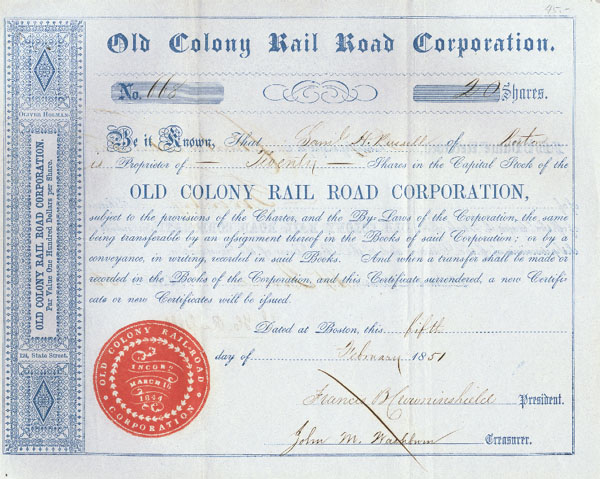 95.-
Old Colony Rail Road Corporation.
No. 668 20 Shares.
Be it Known, That Sam'l H. Russell of Boston
is Proprietor of — Twenty — Shares in the Capital Stock of the
OLD COLONY RAIL ROAD CORPORATION,
subject to the provisions of the Charter, and the By-Laws of the Corporation, the same
being transferable by an aſsignment thereof in the Books of said Corporation; or by a
conveyance, in writing, recorded in said Books. And when a transfer shall be made or
recorded in the Books of the Corporation, and this Certificate surrendered, a new Certifi-
cate or new Certificates will be iſsued.
Dated at Boston, this fifth
day of February 1851
Francis B Crowninshield President.
John M. Washburn Treasurer.
OLIVER HOLMAN
OLD COLONY RAIL ROAD CORPORATION.
Par Value One Hundred Dollars per Share.
124, State Street.
OLD COLONY RAIL-ROAD
CORPORATION
INCORP.
MARCH 16
1844